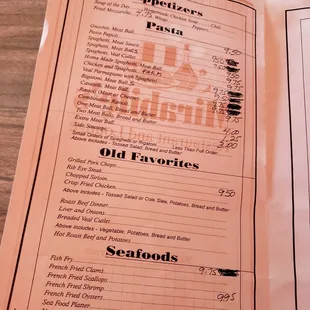 Appetizers
Soup of the Day
Homemade Chicken Soup
Chili
Fried Mozzarella
4.75 Wings
Peppers
Pasta
Gnochie, Meat Ball
9.50
Pasta Fagioli
Spaghetti, Meat Sauce
Spaghetti, Meat Balls
Spaghetti, Veal Cutlet
Home Made Spaghetti, Meat Ball
Chicken and Spaghetti
Veal Parmesiano with Spaghetti
Rigatoni, Meat Ball
Cavatelli, Meat Ball
Ravioli (Meat or Cheese)
Combination Ravioli
One Meat Ball, Bread and Butter
Two Meat Balls, Bread and Butter
Extra Meat Ball
4.00
Side Sauces
Small Orders of Spaghetti or Rigatoni
Less Than Full Order
3.00
Above Includes - Tossed Salad, Bread and Butter
Old Favorites
Grilled Pork Chops
Rib Eye Steak
Chopped Sirloin
Crisp Fried Chicken
9.50
Above Includes - Tossed Salad or Cole Slaw, Potatoes, Bread and Butter
Roast Beef Dinner
Liver and Onions
Breaded Veal Cutlet
Above Includes - Vegetable, Potatoes, Bread and Butter
Hot Roast Beef and Potatoes
Seafoods
Fish Fry
9.75
French Fried Clams
French Fried Scallops
French Fried Shrimp
French Fried Oysters
9.95
Sea Food Platter